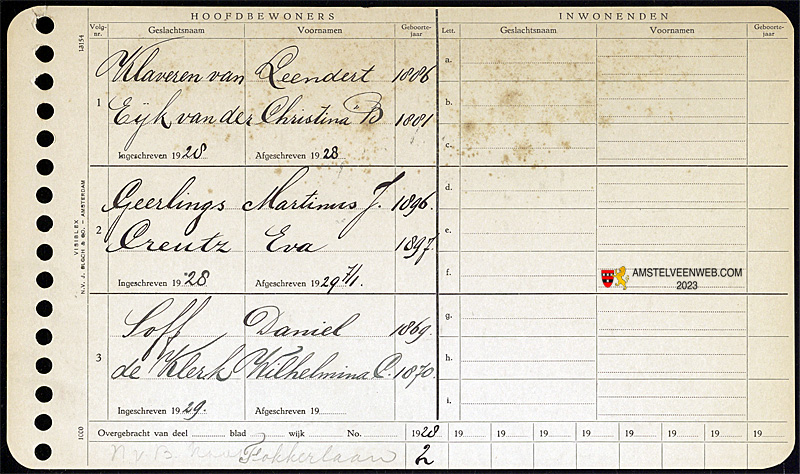 HOOFDBEWONERS INWONENDEN
Volg-nr. Geslachtsnaam Voornamen Geboorte-jaar Lett. Geslachtsnaam Voornamen Geboorte-jaar
18154
Klaveren van Leendert 1886 a.
1 Eijk van der Christina B 1881 b.
c.
Ingeschreven 1928 Afgeschreven 1928
Geerlings Martinus J. 1896. d.
2 Creutz Eva 1897 e.
Ingeschreven 1928. Afgeschreven 1929 7/1. f.
AMSTELVEENWEB.COM
2023
VISIBLEX
N.V. J. BLOCH & CO. - AMSTERDAM
Loff Daniel 1869. g.
3 de Klerk Wilhelmina C. 1870. h.
Ingeschreven 1929. Afgeschreven 19 i.
1000
Overgebracht van deel blad wijk No. 1928 19 19 19 19 19 19 19 19
Fokkerlaan 2